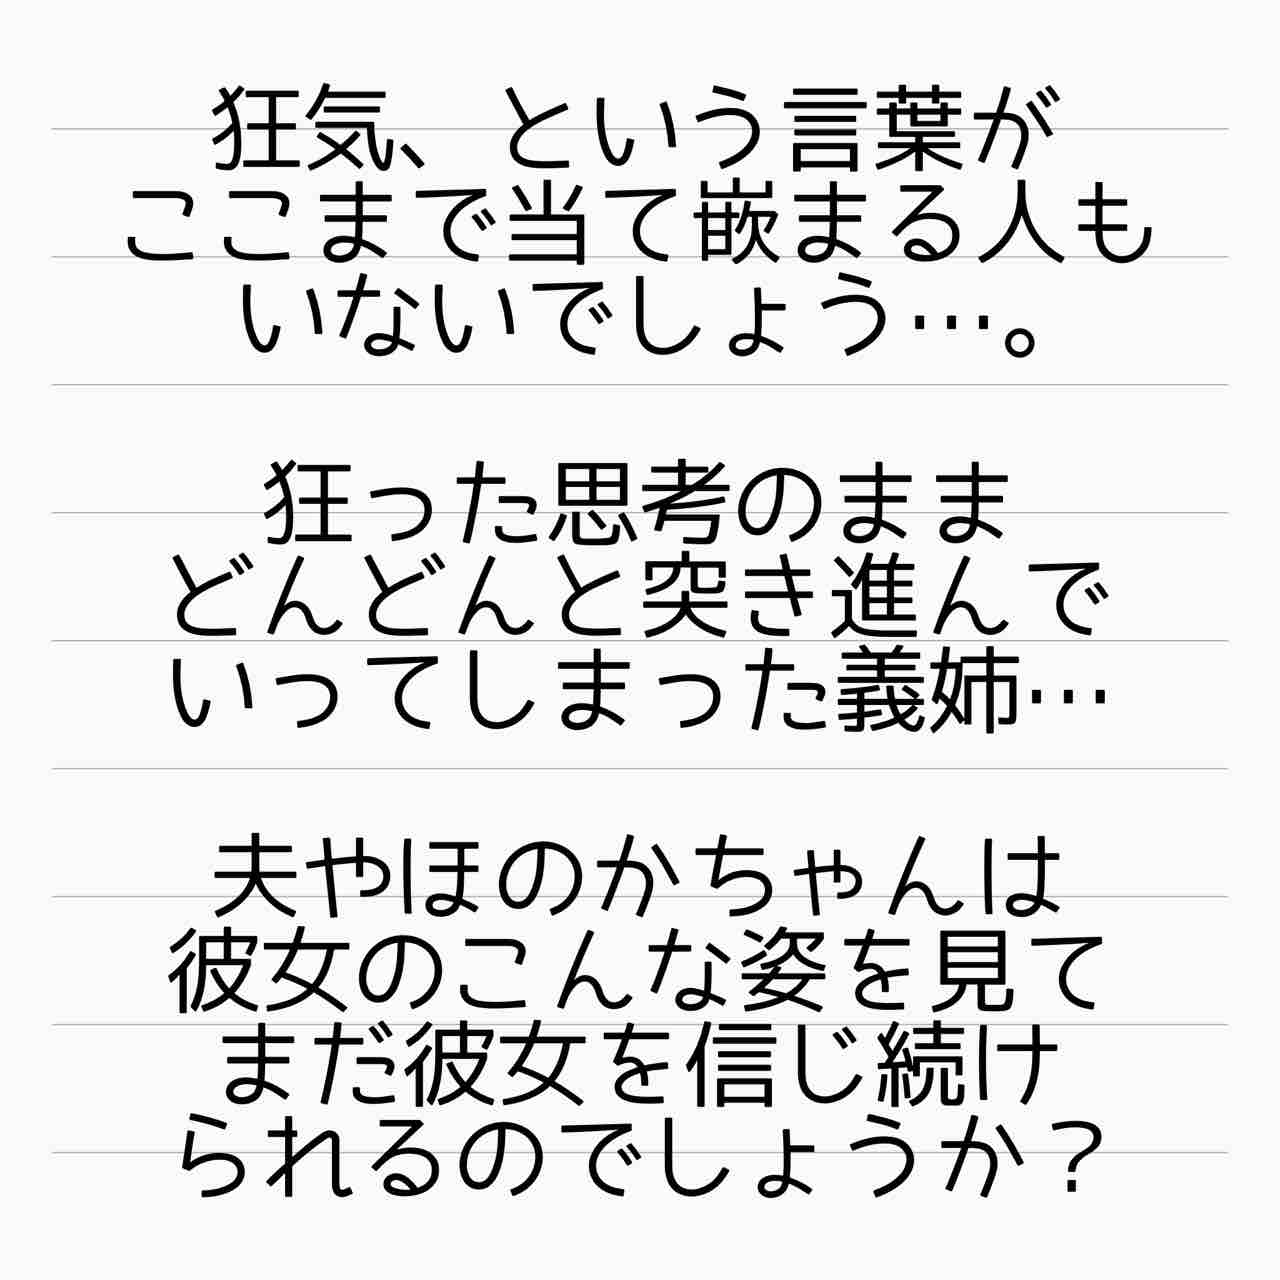 狂気、という言葉が
ここまで当て嵌まる人も
いないでしょう…。
狂った思考のまま
どんどんと突き進んで
いってしまった義姉…
夫やほのかちゃんは
彼女のこんな姿を見て
まだ彼女を信じ続け
られるのでしょうか？